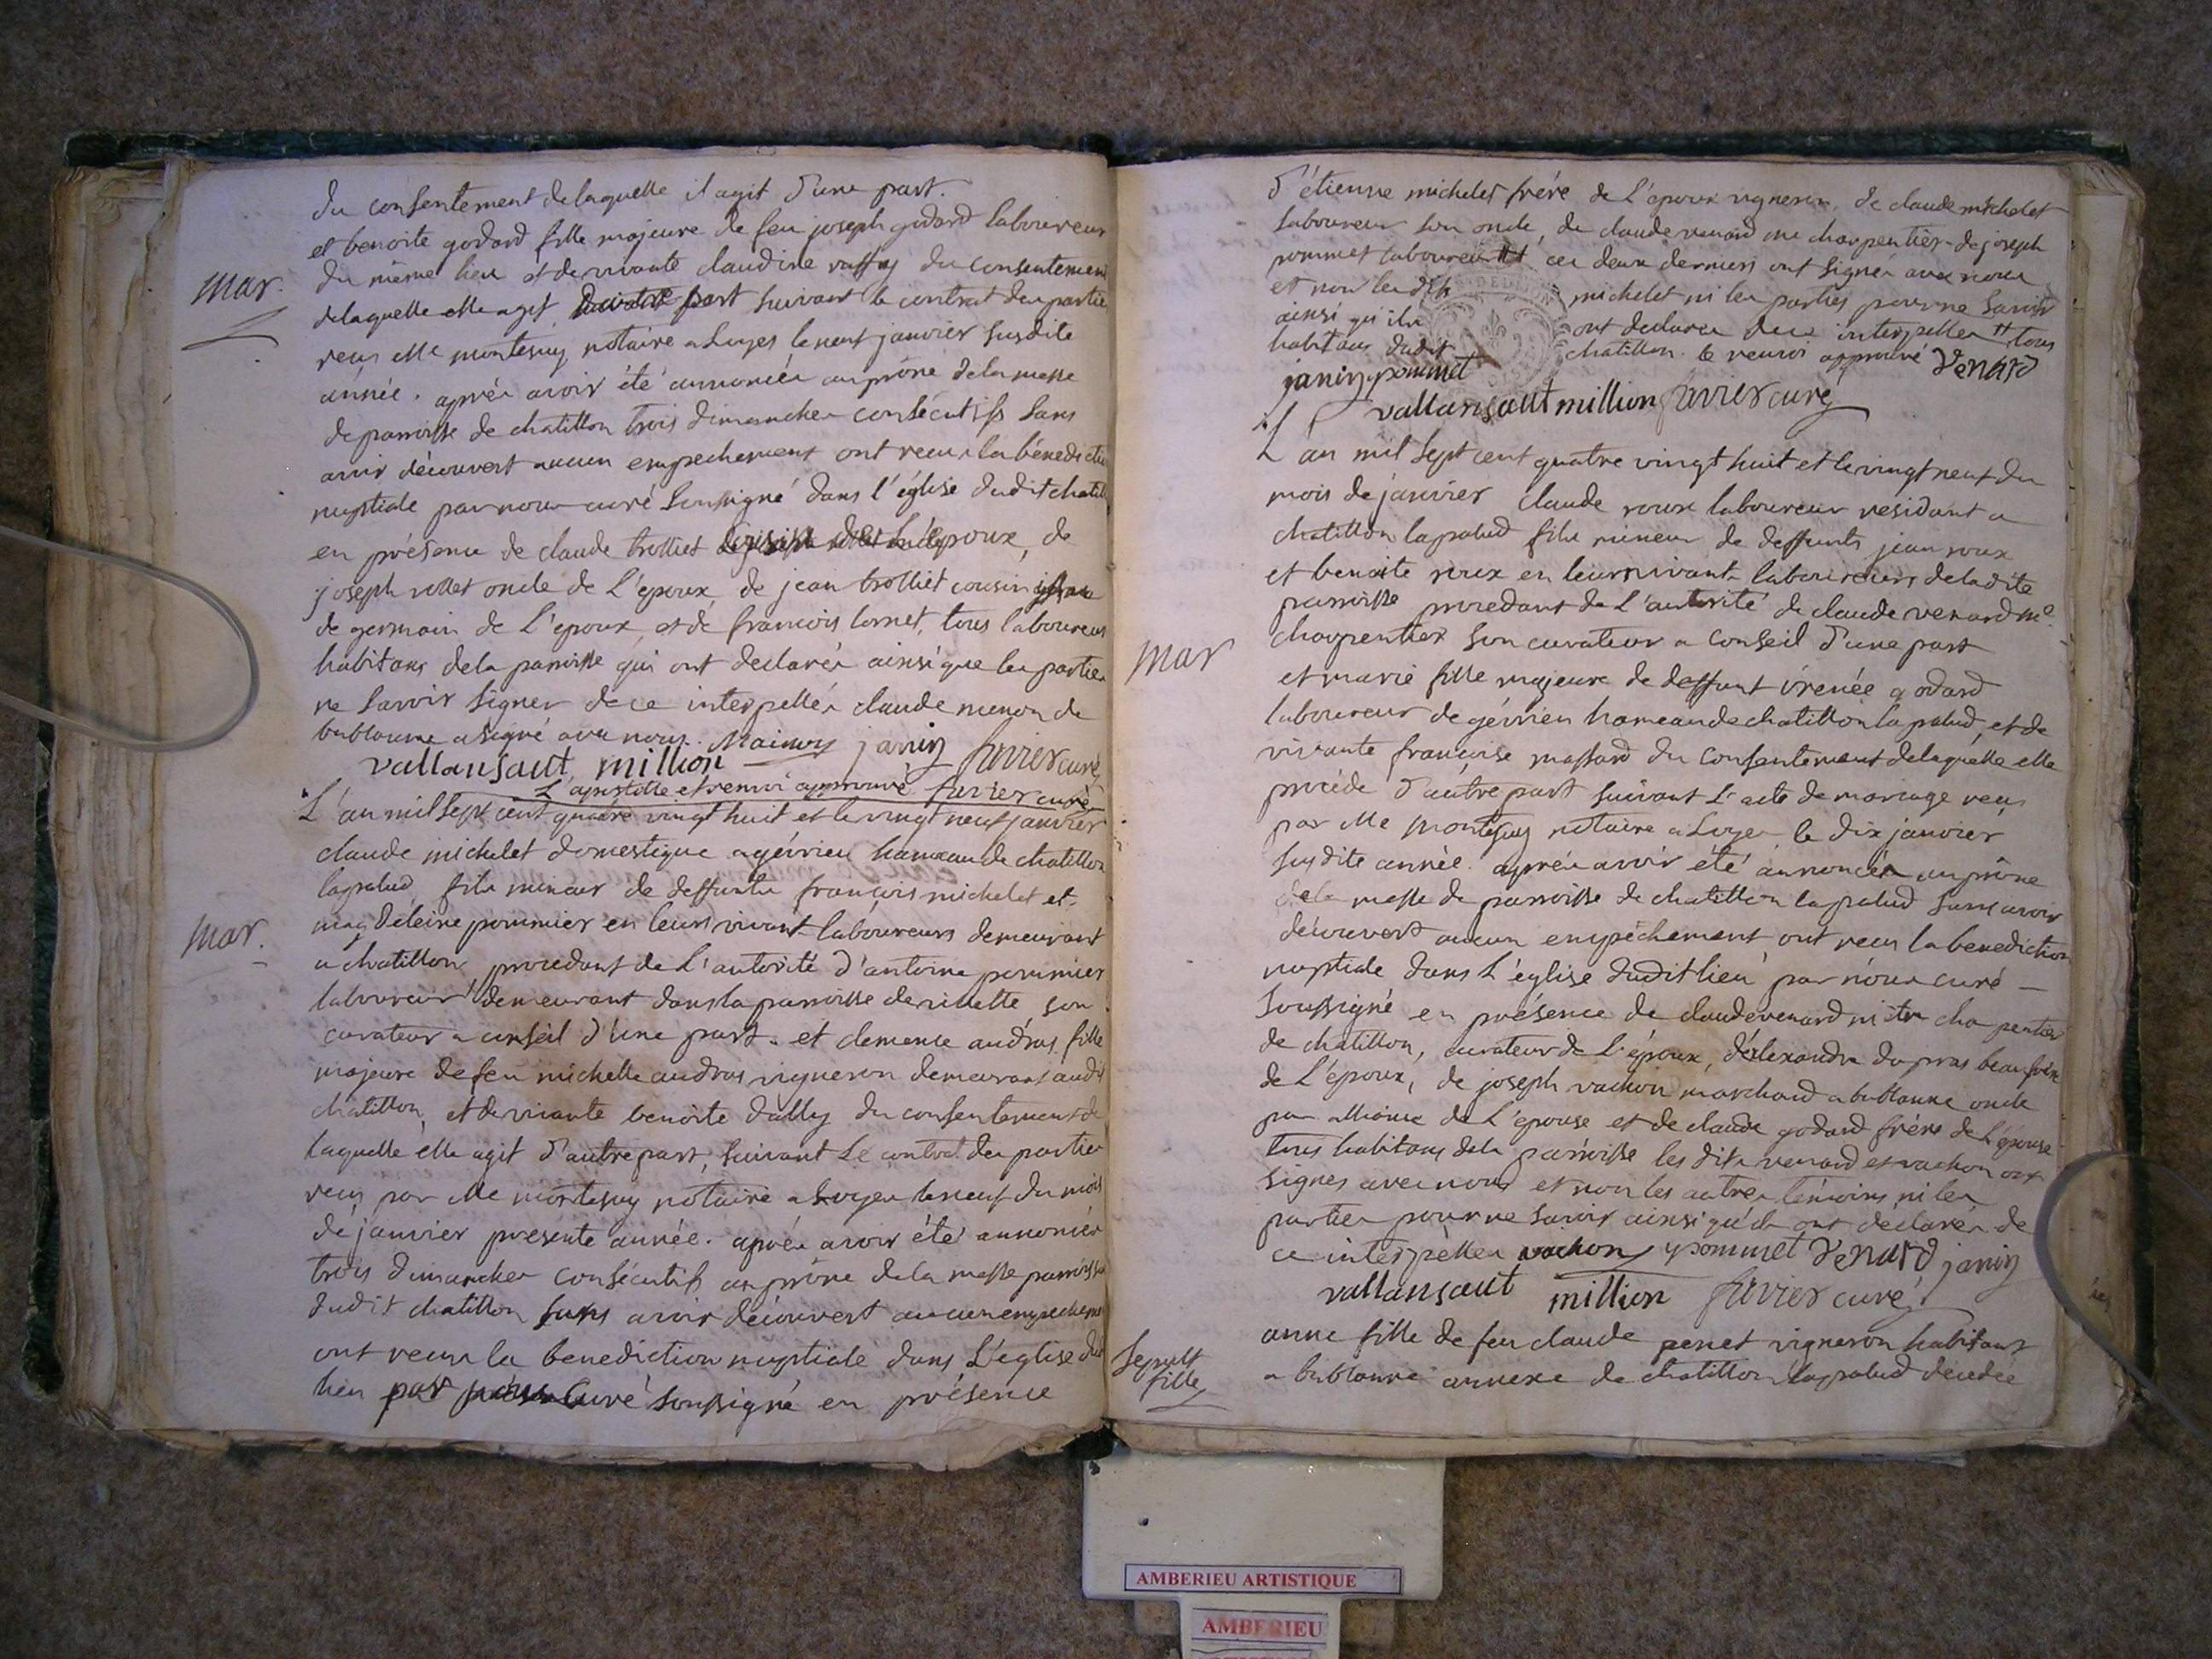 du consentement de laquelle il agit d'une part.
et benoite godard fille majeure de feu joseph godard laboureur
du même lieu et de vivante claudine du consentement
mar.
delaquelle elle agit d'autre part suivant le contrat des parties
reçu Me montesuy notaire a Loyes le neuf janvier susdite
année. après avoir été annoncés au prône de la messe
de paroisse de chatillon trois dimanches consécutifs sans
avoir découvert aucun empechement ont reçu la bénédictio
nuptiale par nous curé soussigné dans l'église dudit chatill
en présence de claude trolliet époux, de
joseph rollet oncle de L'époux, de jean trolliet cousin
de germain de L'epoux, et de francois lornet, tous laboureurs
habitans de la paroisse qui ont declarés ainsi que les parties
ne savoir signer de ce interpellés claude menon de
bublanne a signé avec nous. janin favier curé
vallansaut million
L'apostille et renvoi approuvé favier curé
L'an mil sept cent quatre vingt huit et le vingt neuf janvier
claude michelet domestique a gévrieu hameau de chatillon
lapalud, fils mineur de deffunts françois michelet et
mar.
magdeleine pommier en leurs vivant laboureurs demeurant
a chatillon procedant de L'autorité d'antoine pommier
laboureur demeurant dans la paroisse de son
curateur a conseil d'une part. et clemence audras fille
majeure de feu michelle audras vigneron demeurant audit
chatillon, et de vivante benoite dally du consentement de
laquelle elle agit d'autre part, suivant Le contrat des parties
reçu par Me montesuy notaire a Loyes le neuf du mois
de janvier presente année. après avoir été annoncés
trois dimanches consécutifs au prône de la messe paroissia
dudit chatillon sans avoir découvert aucun empecheme
ont reçus la benediction nuptiale dans L'église dud
lieu par nous Curé soussigné en présence
d'étienne michelet frère de L'époux vigneron, de claude michelet
laboureur son oncle, de claude venard me charpentier de joseph
pommet laboureur ces deux derniers ont signés avec nous
et non les dits michelet ni les parties pour ne savoir
ainsi qu'ils ont declarés de ce interpellés tous
habitans dudit chatillon. le renvoi approuvé Venard
janin pommet
vallansaut million favier curé
L'an mil sept cent quatre vingt huit et le vingt neuf du
mois de janvier claude roux laboureur residant a
chatillon lapalud fils mineur de deffunts jean roux
et benoite roux en leur vivants laboureurs de ladite
paroisse procedant de L'autorité de claude venard me
mar
charpentier son curateur a conseil d'une part
et marie fille majeure de deffunt irenée godard
laboureur de gévrieu hameau de chatillon la palud, et de
vivante françoise massard du consentement de laquelle elle
procède d'autre part suivant L'acte de mariage reçu
par Me montesuy notaire a Loyes le dix janvier
susdite année. après avoir été annoncés au prône
de la messe de paroisse de chatillon la palud sans avoir
découvert aucun empêchement ont reçu la benediction
nuptiale dans L'église dudit lieu par nous curé
soussigné en présence de claude venard charpentier
de chatillon, curateur de L'époux, d'alexandre dupras beau frère
de L'époux, de joseph vachon marchand a bublanne oncle
par alliance de L'épouse et de claude godard frère de L'épouse
tous habitans de la paroisse les dits venard et vachon ont
signés avec nous et non les autres témoins ni les
parties pour ne savoir ainsi qu'ils ont déclarés de
ce interpellés vachon pommet Venard janin
vallansaut million favier curé
anne fille de feu claude penet vigneron habitant
Sepult
fille
a bublanne annexe de chatillon lapalud decedée
AMBERIEU ARTISTIQUE
AMBERIEU